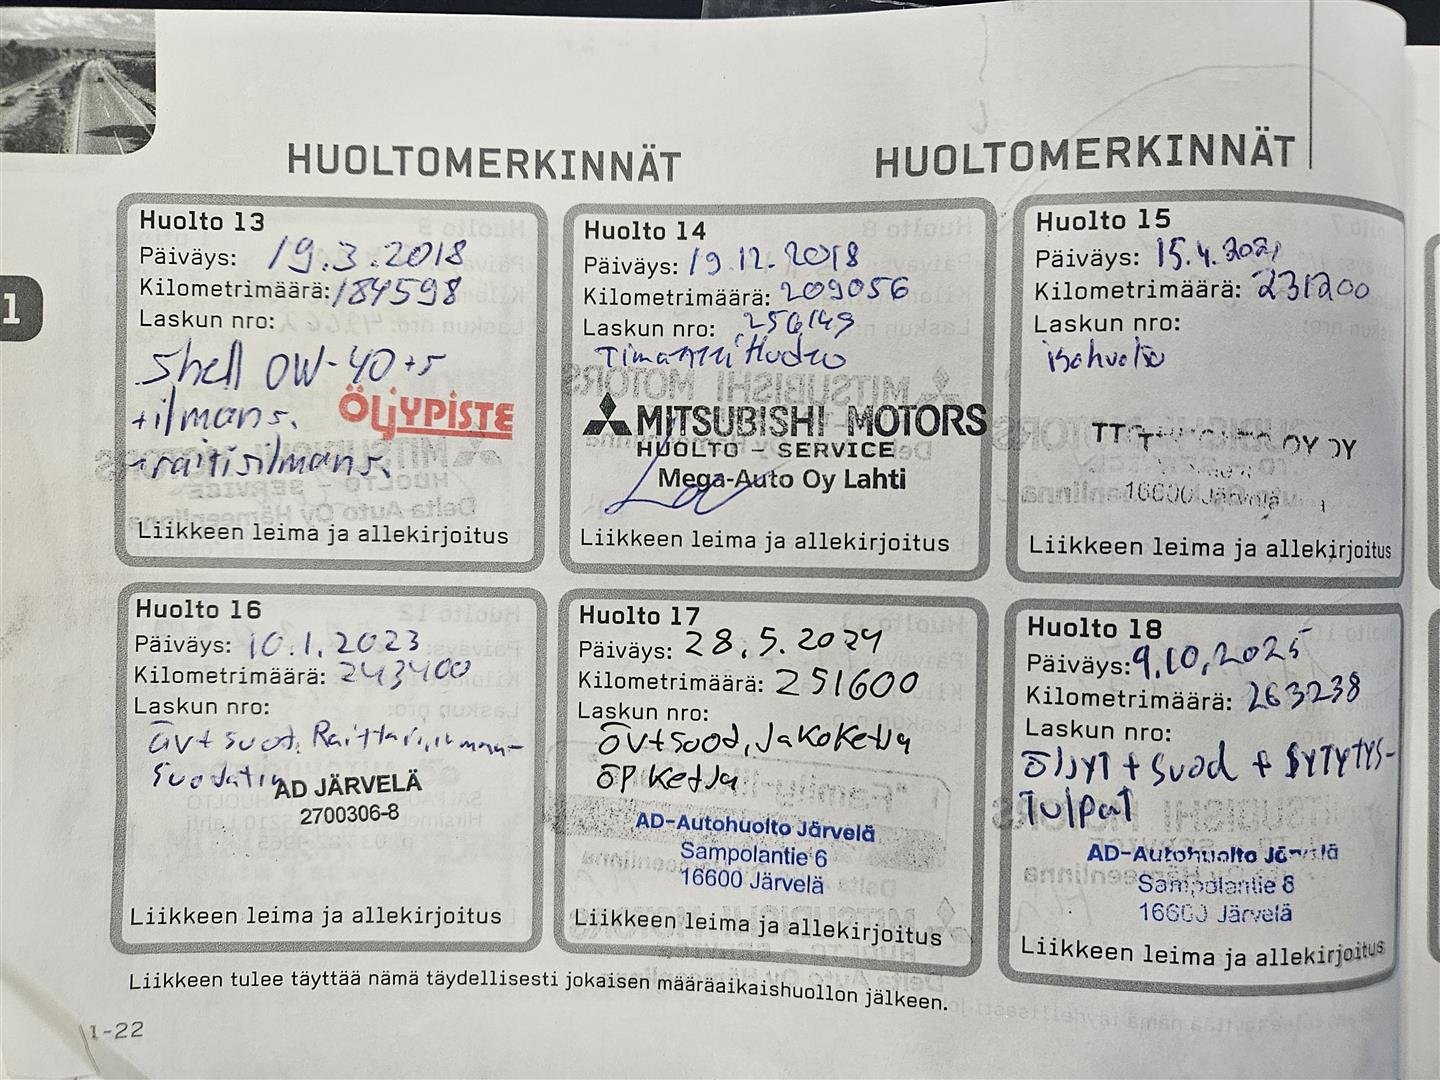 HUOLTOMERKINNÄT
HUOLTOMERKINNÄT
1
Huolto 13
Päiväys: 19.3.2018
Kilometrimäärä: 184598
Laskun nro:
Shell 0W-40+s
+ilmans.
+raitisilmans.
ÖLJYPISTE
Liikkeen leima ja allekirjoitus
Huolto 14
Päiväys: 19.12.2018
Kilometrimäärä: 209056
Laskun nro: 256149
Timantti Huolto
MITSUBISHI MOTORS
HUOLTO - SERVICE
Mega-Auto Oy Lahti
Liikkeen leima ja allekirjoitus
Huolto 15
Päiväys: 15.4.2021
Kilometrimäärä: 231200
Laskun nro:
isohuolto
OY
16600 Järvelä
Liikkeen leima ja allekirjoitus
Huolto 16
Päiväys: 10.1.2023
Kilometrimäärä: 243400
Laskun nro:
öv+suod, Raittari, ilman-
suodatin
AD JÄRVELÄ
2700306-8
Liikkeen leima ja allekirjoitus
Huolto 17
Päiväys: 28.5.2024
Kilometrimäärä: 251600
Laskun nro:
öv+suod, Jakoketju
öp ketju
AD-Autohuolto Järvelä
Sampolantie 6
16600 Järvelä
Liikkeen leima ja allekirjoitus
Huolto 18
Päiväys: 9.10.2025
Kilometrimäärä: 263238
Laskun nro:
öljyt + suod + SYTYTYS-
Tulpat
AD-Autohuolto Järvelä
Sampolantie 6
16600 Järvelä
Liikkeen leima ja allekirjoitus
Liikkeen tulee täyttää nämä täydellisesti jokaisen määräaikaishuollon jälkeen.
1-22